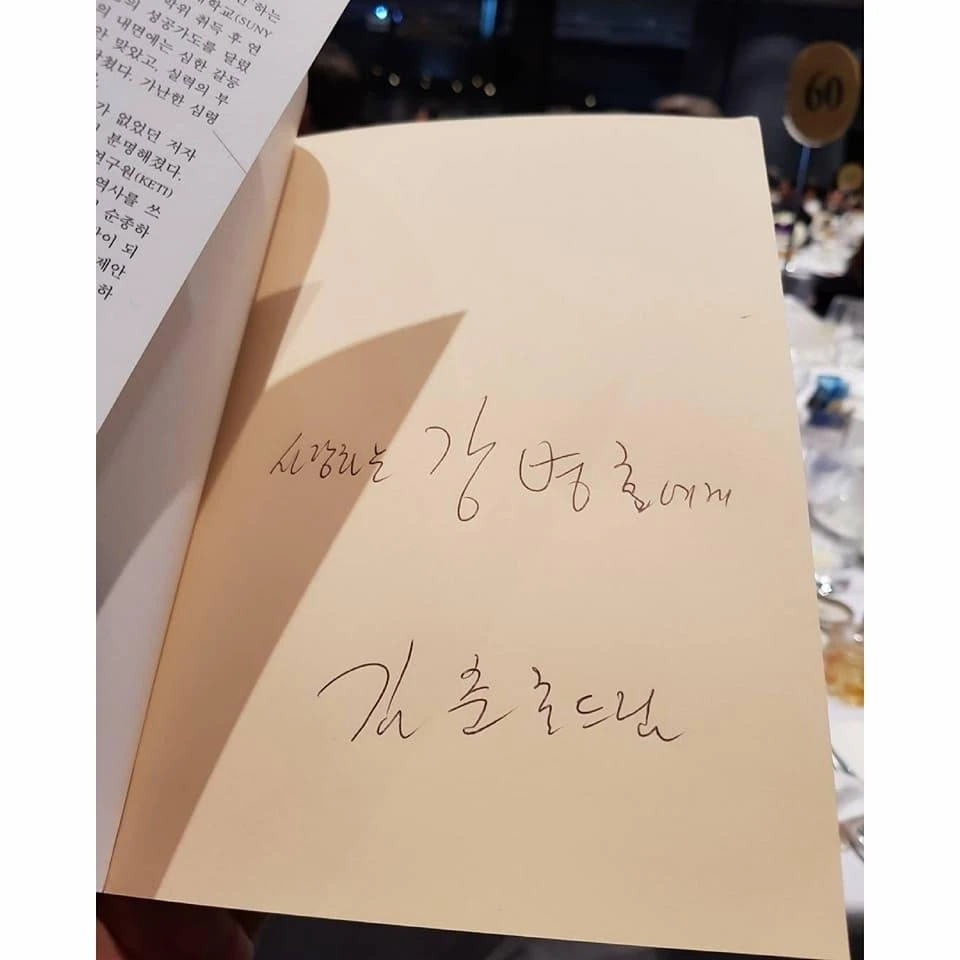 하는
대학교(SUNY
학위 취득 후 연
의 성공가도를 달렸
의 내면에는 심한 갈등
안 맞았고, 실력의 부
쳤다. 가난한 심령
가 없었던 저자
분명해졌다.
연구원(KETI)
역사를 쓰
순종하
이 되
제안
하
60
사랑하는 강병호에게
김춘호드림